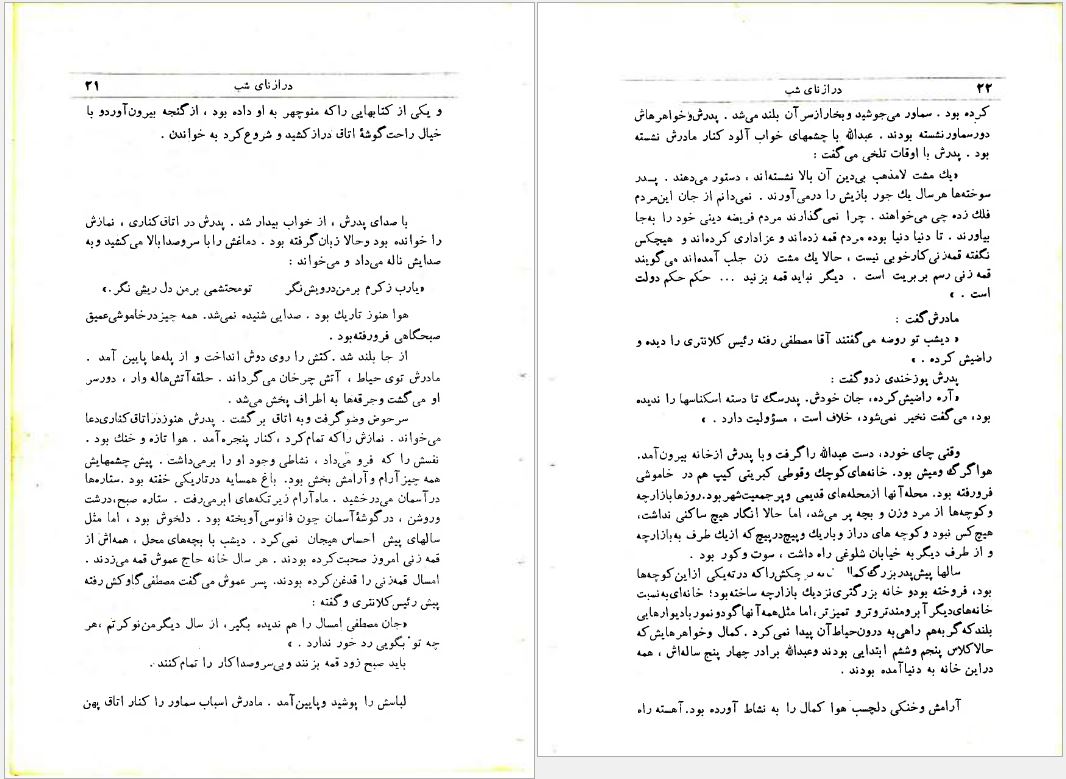 درازنای شب ۲۱
و یکی از کتابهایی راکه منوچهر به او داده بود ، ازگنجه بیرون‌آوردو با
خیال راحت‌گوشهٔ اتاق درازکشید و شروع‌کرد به خواندن .
با صدای پدرش ، از خواب بیدار شد . پدرش در اتاق‌کناری ، نمازش
را خوانده بود وحالا زبان‌گرفته بود . دماغش را با سروصدابالا می‌کشید وبه
صدایش ناله می‌داد و می‌خواند :
«یارب زکرم برمن‌درویش‌نگر تومحتشمی برمن دل ریش نگر.»
هوا هنوز تاریك بود . صدایی شنیده نمی‌شد. همه چیزدرخاموشی‌عمیق
صبحگاهی فرورفته‌بود .
از جا بلند شد .کتش را روی دوش انداخت و از پله‌ها پایین آمد .
مادرش توی حیاط ، آتش چرخان می‌گرداند . حلقه‌آتش‌هاله وار ، دورسر
او می‌گشت وجرقه‌ها به اطراف پخش می‌شد .
سرحوض وضوگرفت وبه اتاق برگشت . پدرش هنوزدراتاق‌کناری‌دعا
می‌خواند . نمازش راکه تمام‌کرد ،کنار پنجره‌آمد . هوا تازه و خنك بود .
نفسش را که فرو می‌داد ، نشاطی وجود او را برمی‌داشت . پیش چشمهایش
همه چیزآرام و آرامش بخش بود. باغ همسایه درتاریکی خفته بود .ستاره‌ها
درآسمان می‌درخشید . ماه‌آرام زیر تکه‌های ابرمی‌رفت . ستاره صبح،درشت
وروشن ، درگوشهٔ‌آسمان چون فانوسی‌آویخته بود . دلخوش بود ، اما مثل
سالهای پیش احساس هیجان نمی‌کرد . دیشب با بچه‌های محل ، همه‌اش از
قمه زنی امروز صحبت‌کرده بودند . هر سال خانه حاج عموش قمه می‌زدند .
امسال قمه‌زنی را قدغن‌کرده بودند. پسر عموش می‌گفت مصطفی‌گاوکش رفته
پیش رئیس‌کلانتری وگفته :
«جان مصطفی امسال را هم ندیده بگیر ، از سال دیگرمن‌نوکرتم ،هر
چه تو بگویی رد خور ندارد . »
باید صبح زود قمه بزنند وبی‌سروصداکار را تمام‌کنند .
لباسش را پوشید وپایین‌آمد . مادرش اسباب سماور را کنار اتاق پهن
درازنای شب ۲۲
کرده بود . سماور می‌جوشید وبخارازسر آن بلند می‌شد . پدرش‌وخواهرهاش
دورسماور نشسته بودند . عبدالله با چشمهای خواب آلود کنار مادرش نشسته
بود . پدرش با اوقات تلخی می‌گفت :
«یك مشت لامذهب بی‌دین آن بالا نشسته‌اند ، دستور می‌دهند . پــدر
سوخته‌ها هرسال یك جور بازیش را درمی‌آورند . نمی‌دانم از جان این‌مردم
فلك زده چی می‌خواهند . چرا نمی‌گذارند مردم فریضه دینی خود را به‌جا
بیاورند . تا دنیا دنیا بوده مردم قمه زده‌اند و عزاداری کرده‌اند و هیچکس
نگفته قمه‌زنی‌کارخوبی نیست ، حالا یك مشت زن جلب آمده‌اند می‌گویند
قمه زنی رسم بربریت است . دیگر نباید قمه بزنید ... حکم حکم دولت
است . »
مادرش‌گفت :
« دیشب تو روضه می‌گفتند آقا مصطفی رفته رئیس کلانتری را دیده و
راضیش کرده . »
پدرش پوزخندی زدوگفت :
«آره راضیش‌کرده، جان خودش. پدرسگ تا دسته اسکناسها را ندیده
بود، می‌گفت نخیر نمی‌شود، خلاف است ، مسؤولیت دارد . »
وقتی چای خورد، دست عبدالله راگرفت وبا پدرش ازخانه بیرون‌آمد.
هواگرگ ومیش بود. خانه‌های‌کوچك وقوطی کبریتی کیپ هم در خاموشی
فرورفته بود. محله‌آنها ازمحله‌های قدیمی وپرجمعیت‌شهربود.روزهابازارچه
وکوچه‌ها از مرد وزن و بچه پر می‌شد، اما حالا انگار هیچ ساکنی نداشت،
هیچ‌کس نبود وکوچه های دراز وباریك وپیچ‌درپیچ‌که ازیك طرف به‌بازارچه
و از طرف دیگربه خیابان شلوغی راه داشت ، سوت وکور بود .
سالها پیش‌پدربزرگ‌کمال چکش‌راکه درته‌یکی ازاین‌کوچه‌ها
بود، فروخته بودو خانه بزرگتری‌نزدیك بازارچه ساخته‌بود؛ خانه‌ای‌به‌نسبت
خانه‌های‌دیگر آبرومندتروترو تمیزتر،اما مثل‌همه‌آنهاگودونموربادیوارهایی
بلندکه‌گربه‌هم راهی‌به درون‌حیاط‌آن پیدا نمی‌کرد .کمال وخواهرهایش‌که
حالاکلاس پنجم وششم ابتدایی بودند وعبدالله برادر چهار پنج ساله‌اش ، همه
دراین خانه به دنیاآمده بودند .
آرامش وخنکی دلچسب هوا کمال را به نشاط آورده بود.آهسته راه